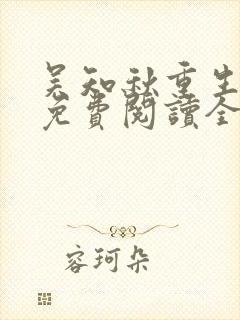 吴知秋重生
免費閱讀全
容珂朵